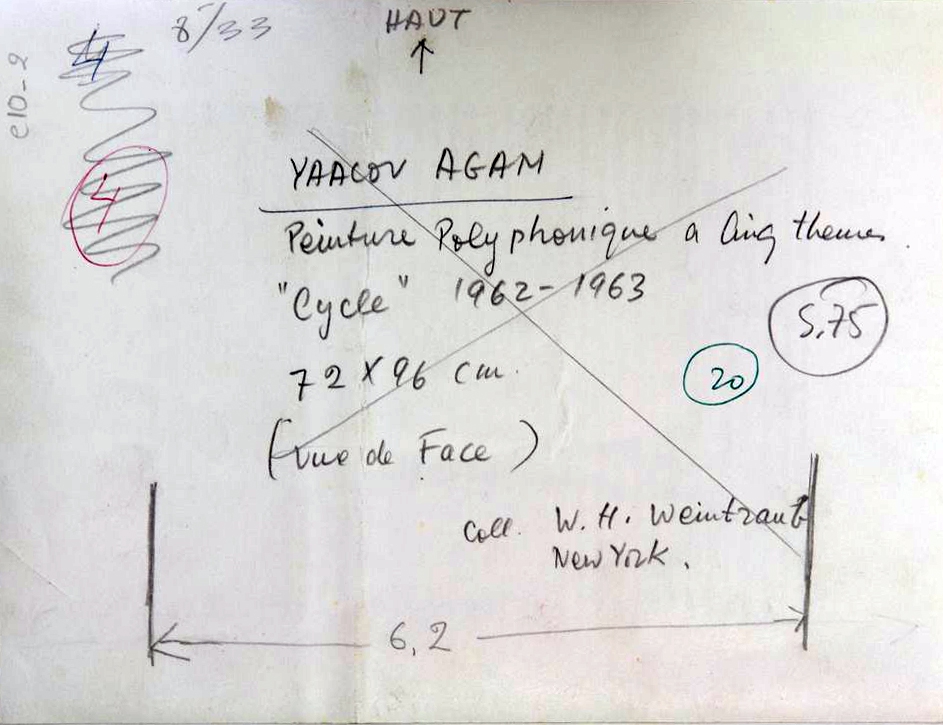 8/33
HAUT
4
e10-2
4
YAACOV AGAM
Peinture Polyphonique a Cinq themes.
"Cycle" 1962-1963
5,75
72 X 96 cm.
20
(vue de Face)
Coll. W. H. Weintraub
New York.
6,2